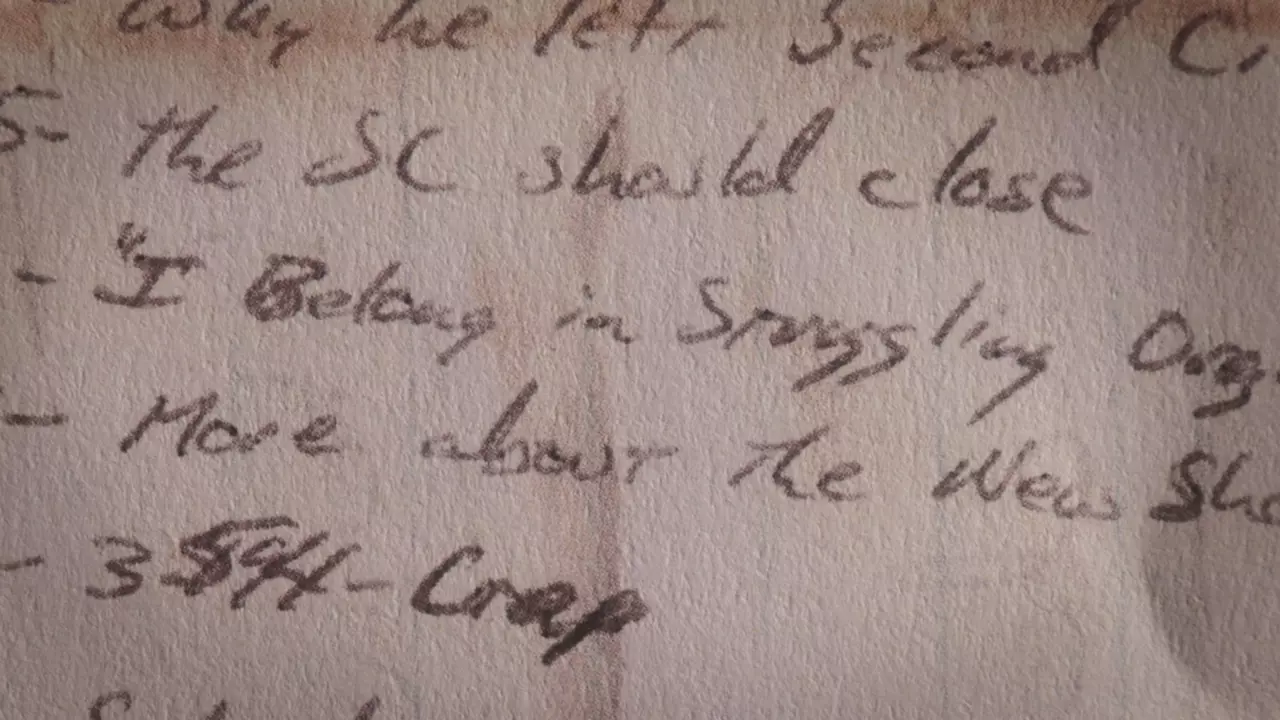 - Why he left Second
5- The SC should close
- "I Belong in Struggling
- More about The New
- - Crap